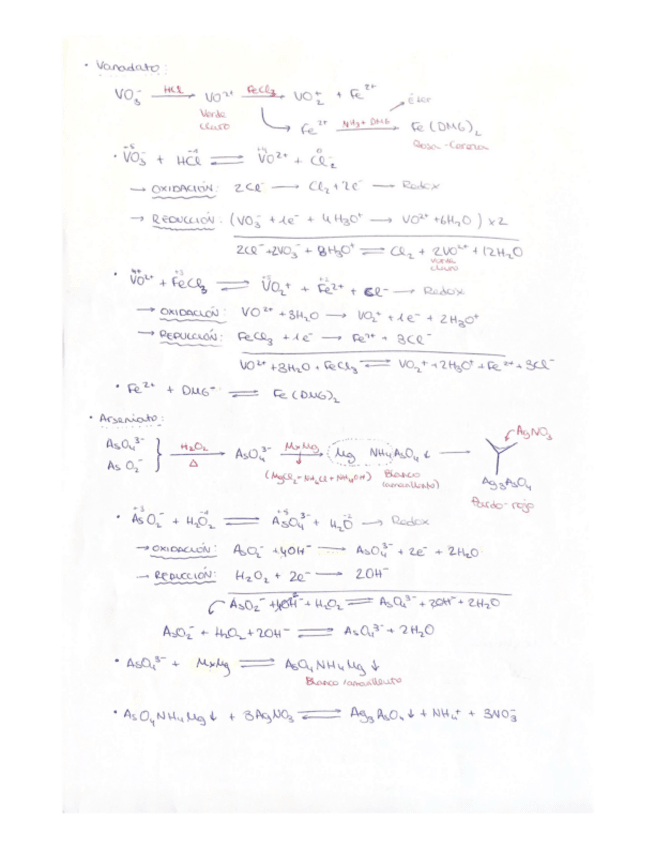 • Vanadato:
VO₃⁻ —HCl→ VO²⁺ —FeCl₃→ VO₂⁺ + Fe²⁺
Verde claro
Éter
Fe²⁺ —NH₃ + DMG→ Fe(DMG)₂
Rosa-Cereza
• V̇O₃⁻ + HCl ⇌ VO²⁺ + Cl₂
+5 -1 +4 0
→ OXIDACIÓN: 2Cl⁻ → Cl₂ + 2e⁻ → Redox
→ REDUCCIÓN: (VO₃⁻ + 1e⁻ + 4H₃O⁺ → VO²⁺ + 6H₂O) x2
2Cl⁻ + 2VO₃⁻ + 8H₃O⁺ ⇌ Cl₂ + 2VO²⁺ + 12H₂O
Verde claro
• VO²⁺ + FeCl₃ ⇌ VO₂⁺ + Fe²⁺ + Cl⁻ → Redox
→ OXIDACIÓN: VO²⁺ + 3H₂O → VO₂⁺ + 1e⁻ + 2H₃O⁺
→ REDUCCIÓN: FeCl₃ + 1e⁻ → Fe²⁺ + 3Cl⁻
VO²⁺ + 3H₂O + FeCl₃ ⇌ VO₂⁺ + 2H₃O⁺ + Fe²⁺ + 3Cl⁻
• Fe²⁺ + DMG⁻ ⇌ Fe(DMG)₂
• Arseniato:
AsO₄³⁻
AsO₂⁻
} —H₂O₂ Δ→ AsO₄³⁻ —MxMg→ Mg NH₄AsO₄↓ →
AgNO₃
(MgCl₂ + NH₄Cl + NH₄OH)
Blanco (amarillento)
Ag₃AsO₄
Pardo-rojo
• AsO₂⁻ + H₂O₂ ⇌ AsO₄³⁻ + H₂O → Redox
→ OXIDACIÓN: AsO₂⁻ + 4OH⁻ → AsO₄³⁻ + 2e⁻ + 2H₂O
→ REDUCCIÓN: H₂O₂ + 2e⁻ → 2OH⁻
AsO₂⁻ + 4OH⁻ + H₂O₂ ⇌ AsO₄³⁻ + 2OH⁻ + 2H₂O
AsO₂⁻ + H₂O₂ + 2OH⁻ ⇌ AsO₄³⁻ + 2H₂O
• AsO₄³⁻ + MxMg ⇌ AsO₄NH₄Mg↓
Blanco amarillento
• AsO₄NH₄Mg↓ + 3AgNO₃ ⇌ Ag₃AsO₄↓ + NH₄⁺ + 3NO₃⁻